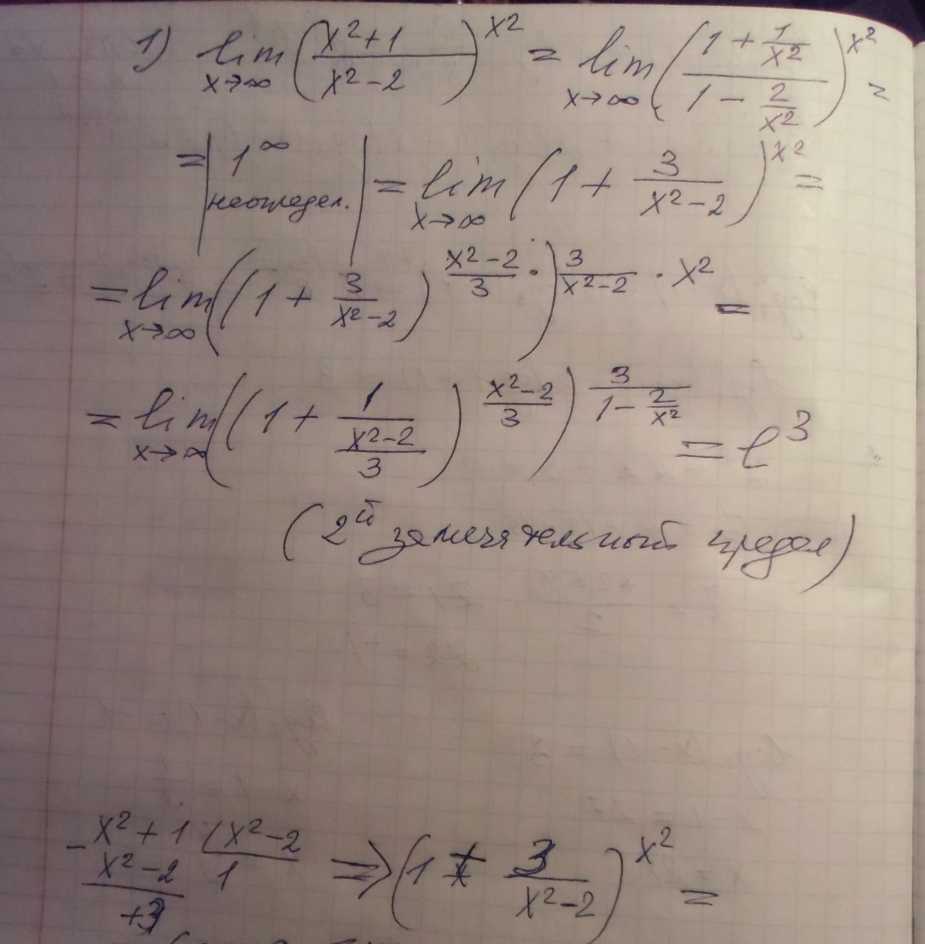 1) lim x→∞ ((x²+1)/(x²-2))^x² = lim x→∞ ((1 + 1/x²)/(1 - 2/x²))^x² =
= | 1^∞ неопредел. | = lim x→∞ (1 + 3/(x²-2))^x² =
= lim x→∞ ((1 + 3/(x²-2))^((x²-2)/3 ·))^(3/(x²-2) · x²) =
= lim x→∞ ((1 + 1/((x²-2)/3))^((x²-2)/3))^(3/(1 - 2/x²)) = e³
(2й замечательный предел)
- x² + 1 | x²-2
x²-2 | 1
+3
⇒ (1 + 3/(x²-2))^x² =